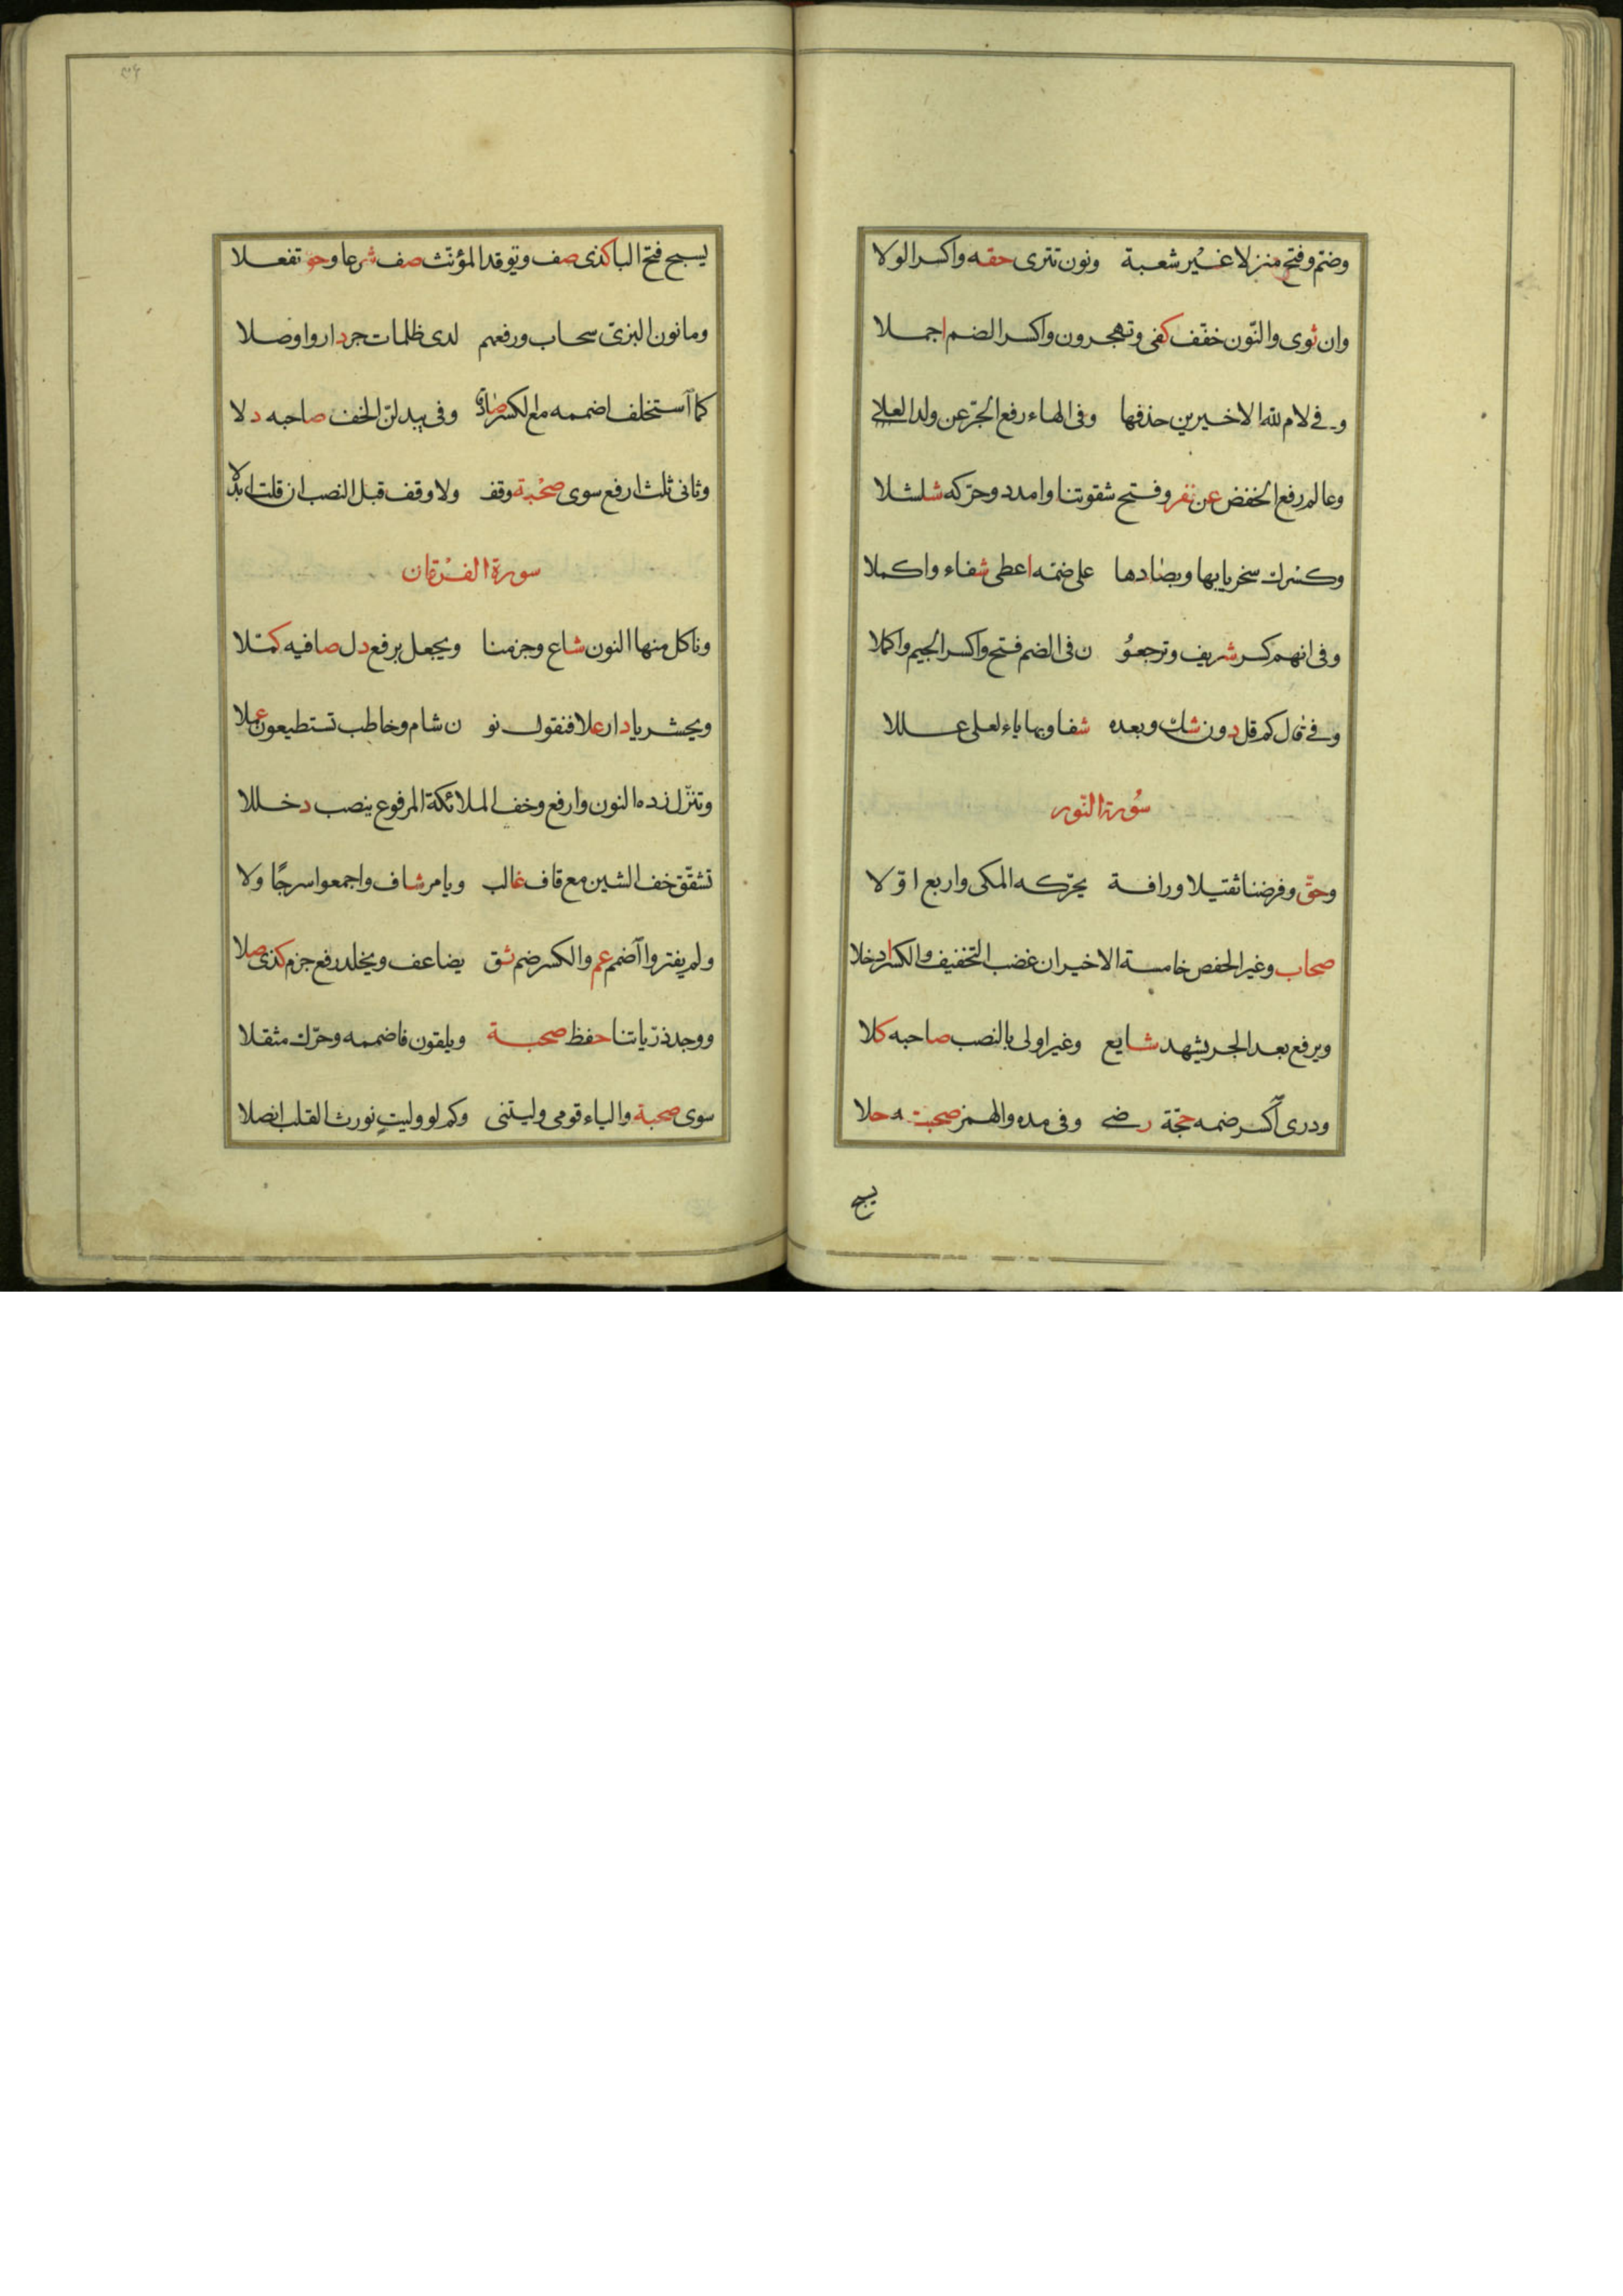 وضم وفتح منزلا غير شعبة ونون تترى حقه واكسر الولا
وان ثوى والنون خفف كفى وتهجرون واكسر الضم اجملا
وفى لام لله الاخيرين حذفها وفى الهاء رفع الجر عن ولد العلا
وعالم رفع الخفض عن نفر وفتح شقوتنا وامدد وحركه شلشلا
وكسرك سخريا بها وبصادها على ضمه اعطى شفاء واكملا
وفى انهم كسر شريف وترجعو ن فى الضم فتح واكسر الجيم واكملا
وفى قال كم قل دون شك وبعده شفا وبها ياء لعلى عللا
سورة النور
وحق وفرضنا ثقيلا ورافة يحركه المكى واربع اولا
صحاب وغير الحفص خامسة الاخير ان غضب التخفيف والكسر ادخلا
ويرفع بعد الجر يشهد شايع وغير اولى بالنصب صاحبه كلا
ودرى اكسر ضمه حجة رضى وفى مده والهمز صحبته حلا
يسبح
يسبح فتح البا كذى صف ويوقد المؤنث صف شرعا وحق تفعلا
وما نون البزى سحاب ورفعهم لدى ظلمات جر دار واوصلا
كما استخلف اضممه مع الكسر صادقا وفى يبدلن الخف صاحبه دلا
وثانى ثلث ارفع سوى صحبة وقف ولا وقف قبل النصب ان قلت ابدلا
سورة الفرقان
وناكل منها النون شاع وجزمنا ويجعل برفع دل صافيه كملا
ويحشر يا دار علا فنقول نو ن شام وخاطب تستطيعون عملا
وننزل زده النون وارفع وخف الملائكة المرفوع ينصب دخللا
تشقق خف الشين مع قاف غالب ويامر شاف واجمعوا سرجا ولا
ولم يفتروا اضمم عم والكسر ضم ثق يضاعف ويخلد رفع جزم كذى صلا
ووحد ذرياتنا حفظ صحبة ويلقون فاضممه وحرك مثقلا
سوى صحبة والياء قومى وليتنى وكم لو وليت نورث القلب انصلا